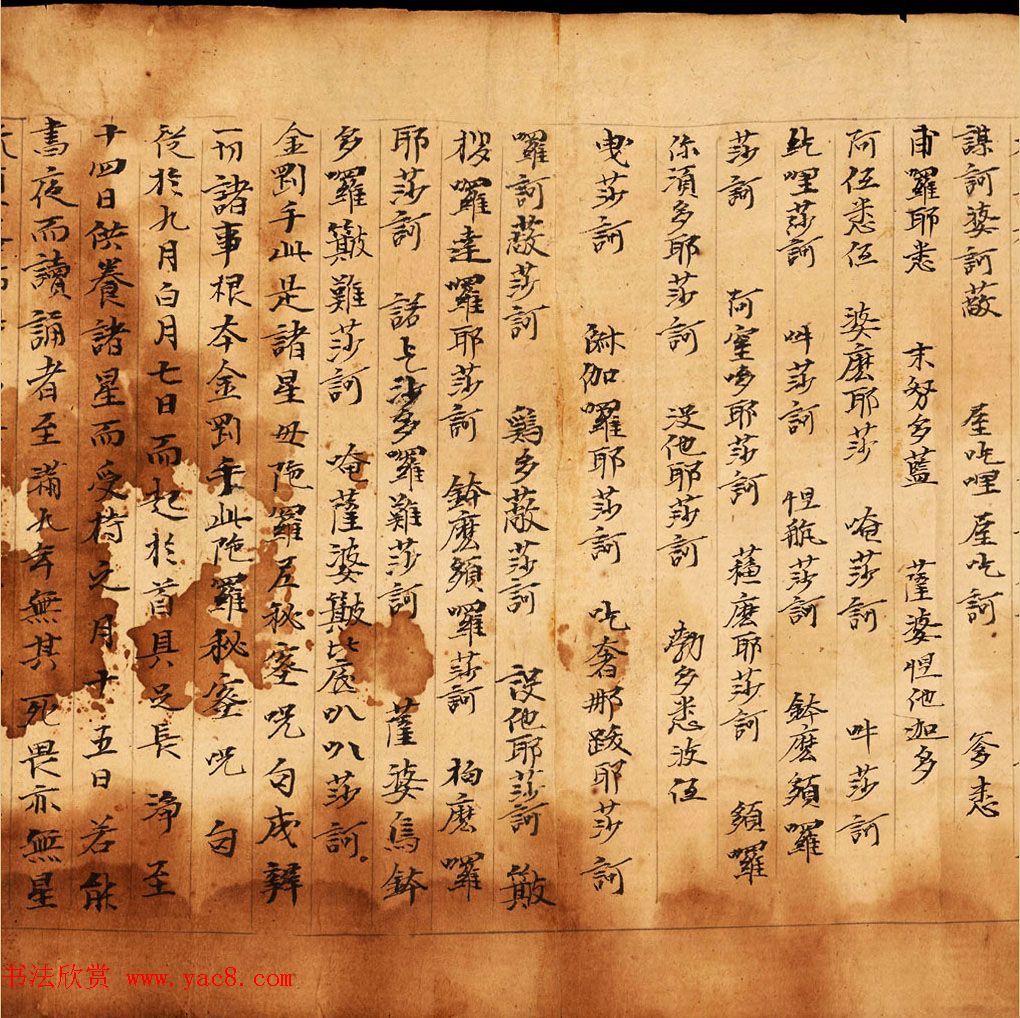 謀訶婆訶蔽 屋吃哩屋吃訶 爹悉
甫羅耶悉 末努多藍 薩婆怛他迦多
阿伍悉伍 婆麼耶莎 唵莎訶 吽莎訶
紇哩莎訶 吽莎訶 怛𠰷莎訶 鉢麼頞囉
莎訶 阿室哆耶莎訶 蘓麼耶莎訶 頞囉
你湏多耶莎訶 没他耶莎訶 勃多悉波伍
曳莎訶 伽囉耶莎訶 吃奢那跋耶莎訶
囉訶蔽莎訶 鷄多蔽莎訶 設他耶莎訶 簸
拶囉達囉耶莎訶 鉢麼頞囉莎訶 枸麼囉
耶莎訶 諾乞沙多囉難莎訶 薩婆烏鉢
多囉簸難莎訶 唵薩婆簸底叭叭莎訶
金剛手此是諸星母陁羅尼秘密呪句成辦
一切諸事根本金剛手此陁羅秘密呪 句
從於九月白月七日而起於首具足長 淨至
十四日供養諸星而受持之月十五日若能
書夜而讀誦者至滿九年無其死畏亦無星
书法欣赏 www.yac8.com